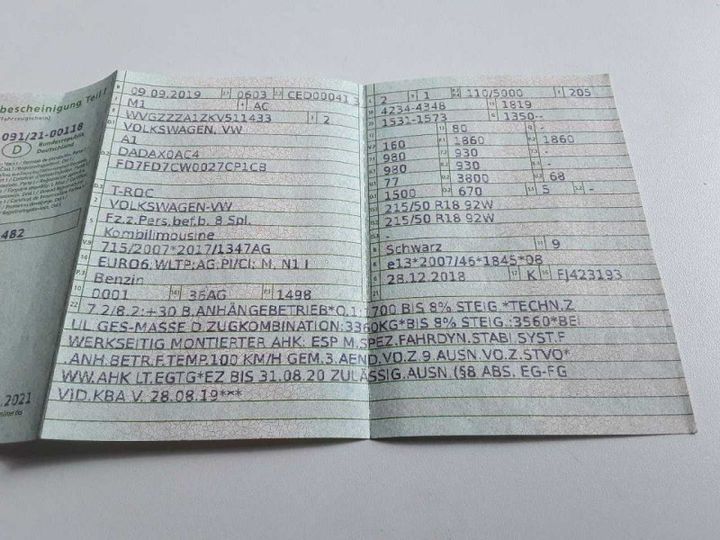 bescheinigung Teil I
(Fahrzeugschein)
091/21-00118
D Bundesrepublik
Deutschland
482
.2021
09.09.2019 0603 CED00041 3
M1 AC
WVGZZZA1ZKV511433 2
VOLKSWAGEN, VW
A1
DADAX0AC4
FD7FD7CW0027CP1CB
T-ROC
VOLKSWAGEN-VW
Fz.z.Pers.bef.b. 8 Spl.
Kombilimousine
715/2007*2017/1347AG
EURO6,WLTP;AG;PI/CI; M, N1 I
Benzin
0001 36AG 1498
2 1 110/5000 205
4234-4348 1819
1531-1573 1350--
- 80 -
160 1860 1860
980 930 -
980 930 -
77 3800 68
1500 670 5 -
215/50 R18 92W
215/50 R18 92W
-
-
Schwarz 9
e13*2007/46*1845*08
28.12.2018 K FJ423193
7.2/8.2:+30 B.ANHÄNGEBETRIEB*O.1:1700 BIS 8% STEIG.*TECHN.Z
UL.GES-MASSE D.ZUGKOMBINATION:3360KG*BIS 8% STEIG.:3560*BEI
WERKSEITIG MONTIERTER AHK: ESP M.SPEZ.FAHRDYN.STABI.SYST.F
.ANH.BETR.F.TEMP.100 KM/H GEM.3.AEND.VO.Z.9 AUSN.VO.Z.STVO*
WW.AHK LT.EGTG*EZ BIS 31.08.20 ZULÄSSIG.AUSN (§8 ABS. EG-FG
V)D.KBA V. 28.08.19***